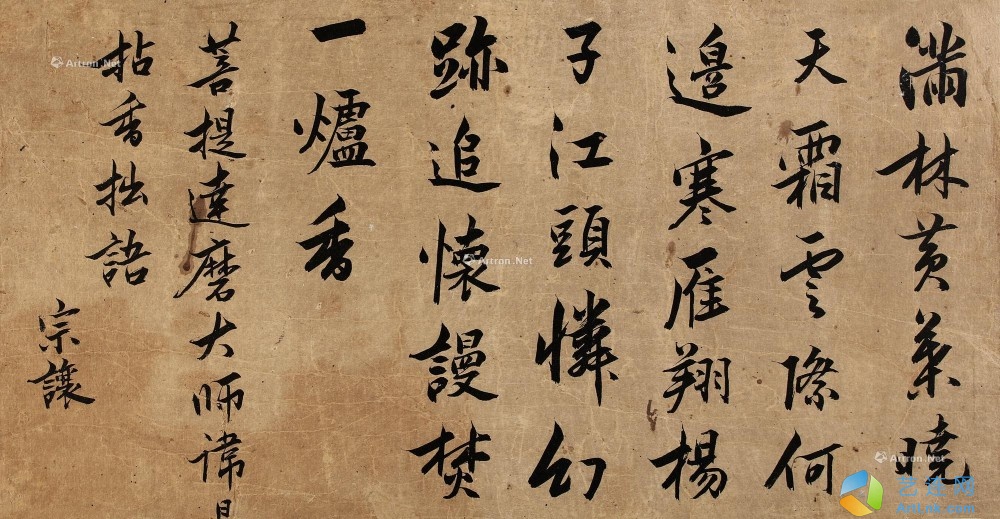 滿林黃葉曉
天霜雲際何
邊寒雁翔楊
子江頭憐幻
跡追懷謾焚
一爐香
菩提達磨大師諱日
拈香拙語
宗讓
Artron.Net
Artron.Net
Artron.Net